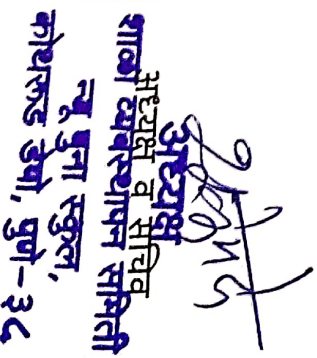 अध्यक्ष
अध्यक्ष व सचिव
शाळा व्यवस्थापन समिती
न्यू पुना स्कुल,
कोथरुड डेपो, पुणे-३८